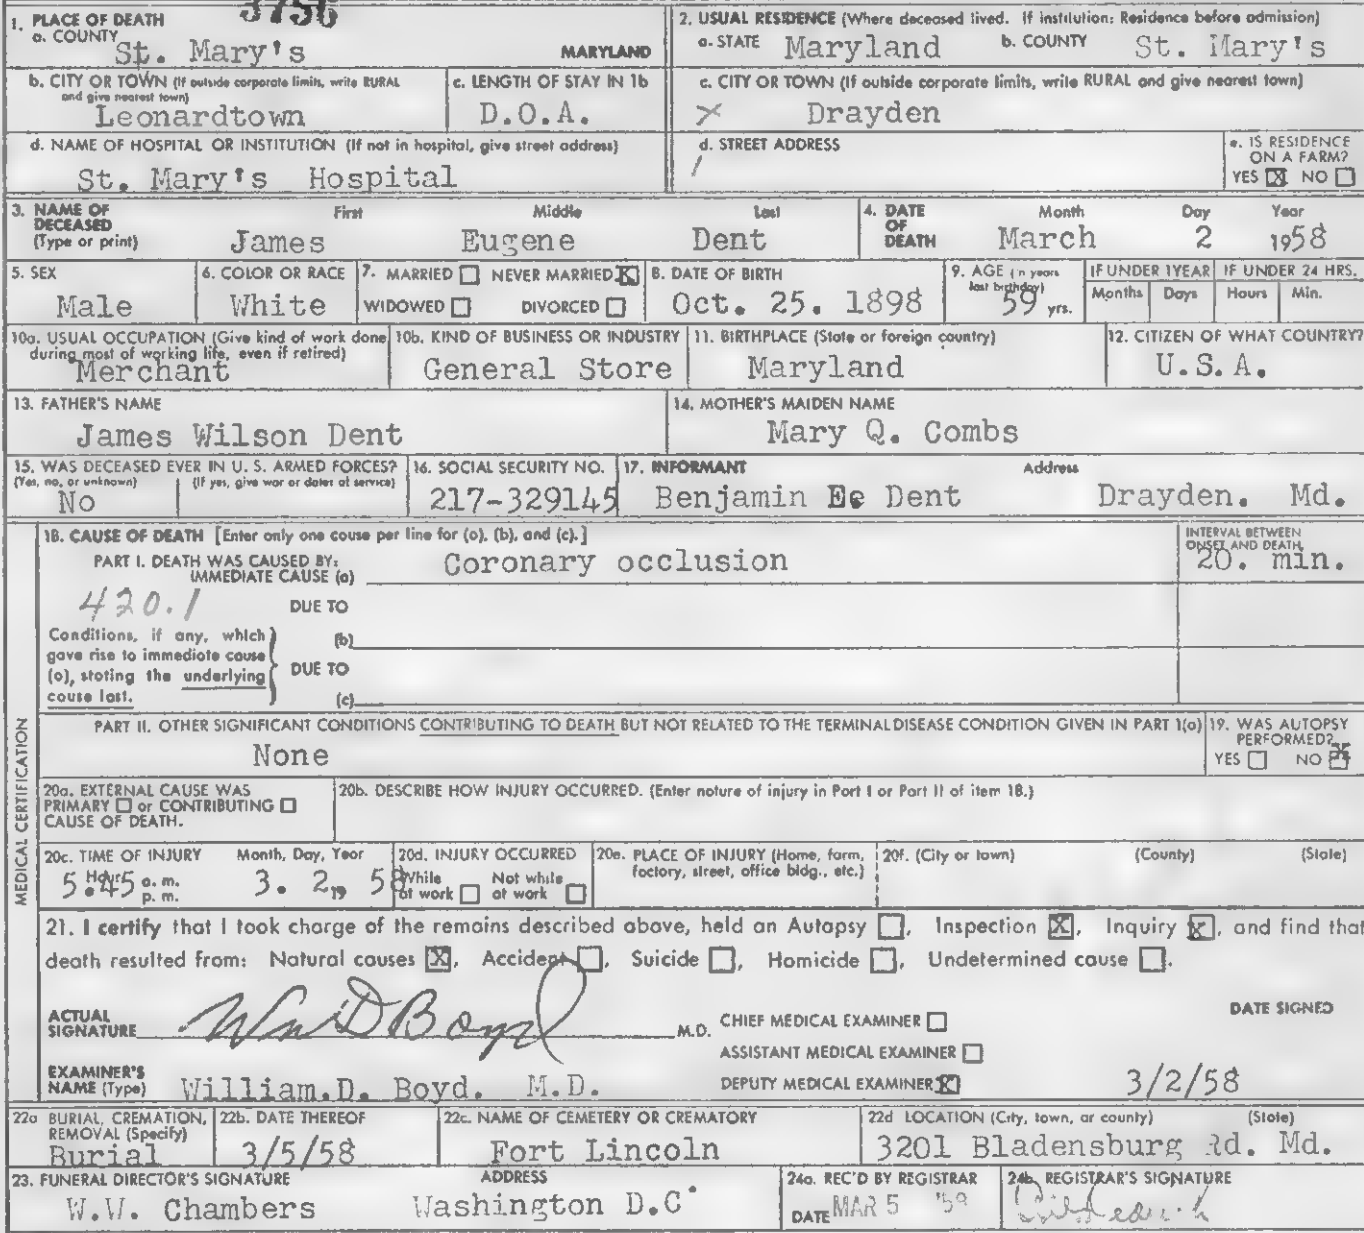 3756
1. PLACE OF DEATH
a. COUNTY St. Mary's MARYLAND
2. USUAL RESIDENCE (Where deceased lived. If institution: Residence before admission)
a. STATE Maryland b. COUNTY St. Mary's
b. CITY OR TOWN (If outside corporate limits, write RURAL and give nearest town)
Leonardtown
c. LENGTH OF STAY IN 1b
D.O.A.
c. CITY OR TOWN (If outside corporate limits, write RURAL and give nearest town)
X Drayden
d. NAME OF HOSPITAL OR INSTITUTION (If not in hospital, give street address)
St. Mary's Hospital
d. STREET ADDRESS
e. IS RESIDENCE ON A FARM?
YES X NO
3. NAME OF DECEASED (Type or print)
First Middle Last
James Eugene Dent
4. DATE OF DEATH
Month Day Year
March 2 1958
5. SEX
Male
6. COLOR OR RACE
White
7. MARRIED NEVER MARRIED X
WIDOWED DIVORCED
8. DATE OF BIRTH
Oct. 25. 1898
9. AGE (In years last birthday)
59 yrs.
IF UNDER 1 YEAR
Months Days
IF UNDER 24 HRS.
Hours Min.
10a. USUAL OCCUPATION (Give kind of work done during most of working life, even if retired)
Merchant
10b. KIND OF BUSINESS OR INDUSTRY
General Store
11. BIRTHPLACE (State or foreign country)
Maryland
12. CITIZEN OF WHAT COUNTRY?
U.S.A.
13. FATHER'S NAME
James Wilson Dent
14. MOTHER'S MAIDEN NAME
Mary Q. Combs
15. WAS DECEASED EVER IN U. S. ARMED FORCES?
(Yes, no, or unknown) (If yes, give war or dates of service)
No
16. SOCIAL SECURITY NO.
217-329145
17. INFORMANT Address
Benjamin Ee Dent Drayden. Md.
MEDICAL CERTIFICATION
18. CAUSE OF DEATH [Enter only one cause per line for (a), (b), and (c).]
PART I. DEATH WAS CAUSED BY:
IMMEDIATE CAUSE (a) Coronary occlusion
INTERVAL BETWEEN ONSET AND DEATH
20. min.
420.1
DUE TO
Conditions, if any, which gave rise to immediate cause (a), stating the underlying cause last.
(b)
DUE TO
(c)
PART II. OTHER SIGNIFICANT CONDITIONS CONTRIBUTING TO DEATH BUT NOT RELATED TO THE TERMINAL DISEASE CONDITION GIVEN IN PART 1(a)
None
19. WAS AUTOPSY PERFORMED?
YES NO X
20a. EXTERNAL CAUSE WAS
PRIMARY or CONTRIBUTING
CAUSE OF DEATH.
20b. DESCRIBE HOW INJURY OCCURRED. (Enter nature of injury in Part I or Part II of item 18.)
20c. TIME OF INJURY Month, Day, Year
Hour a. m. p. m.
5.45 3. 2, 19 58
20d. INJURY OCCURRED
While at work Not while at work
20e. PLACE OF INJURY (Home, farm, factory, street, office bldg., etc.)
20f. (City or town) (County) (State)
21. I certify that I took charge of the remains described above, held an Autopsy , Inspection X, Inquiry X, and find that
death resulted from: Natural causes X, Accident , Suicide , Homicide , Undetermined cause .
ACTUAL SIGNATURE Wm D Boyd M.D.
CHIEF MEDICAL EXAMINER
DATE SIGNED
ASSISTANT MEDICAL EXAMINER
EXAMINER'S NAME (Type) William.D. Boyd. M.D.
DEPUTY MEDICAL EXAMINER X
3/2/58
22a BURIAL, CREMATION, REMOVAL (Specify)
Burial
22b. DATE THEREOF
3/5/58
22c. NAME OF CEMETERY OR CREMATORY
Fort Lincoln
22d LOCATION (City, town, or county) (State)
3201 Bladensburg Rd. Md.
23. FUNERAL DIRECTOR'S SIGNATURE ADDRESS
W.W. Chambers Washington D.C.
24a. REC'D BY REGISTRAR
DATE MAR 5
24b. REGISTRAR'S SIGNATURE